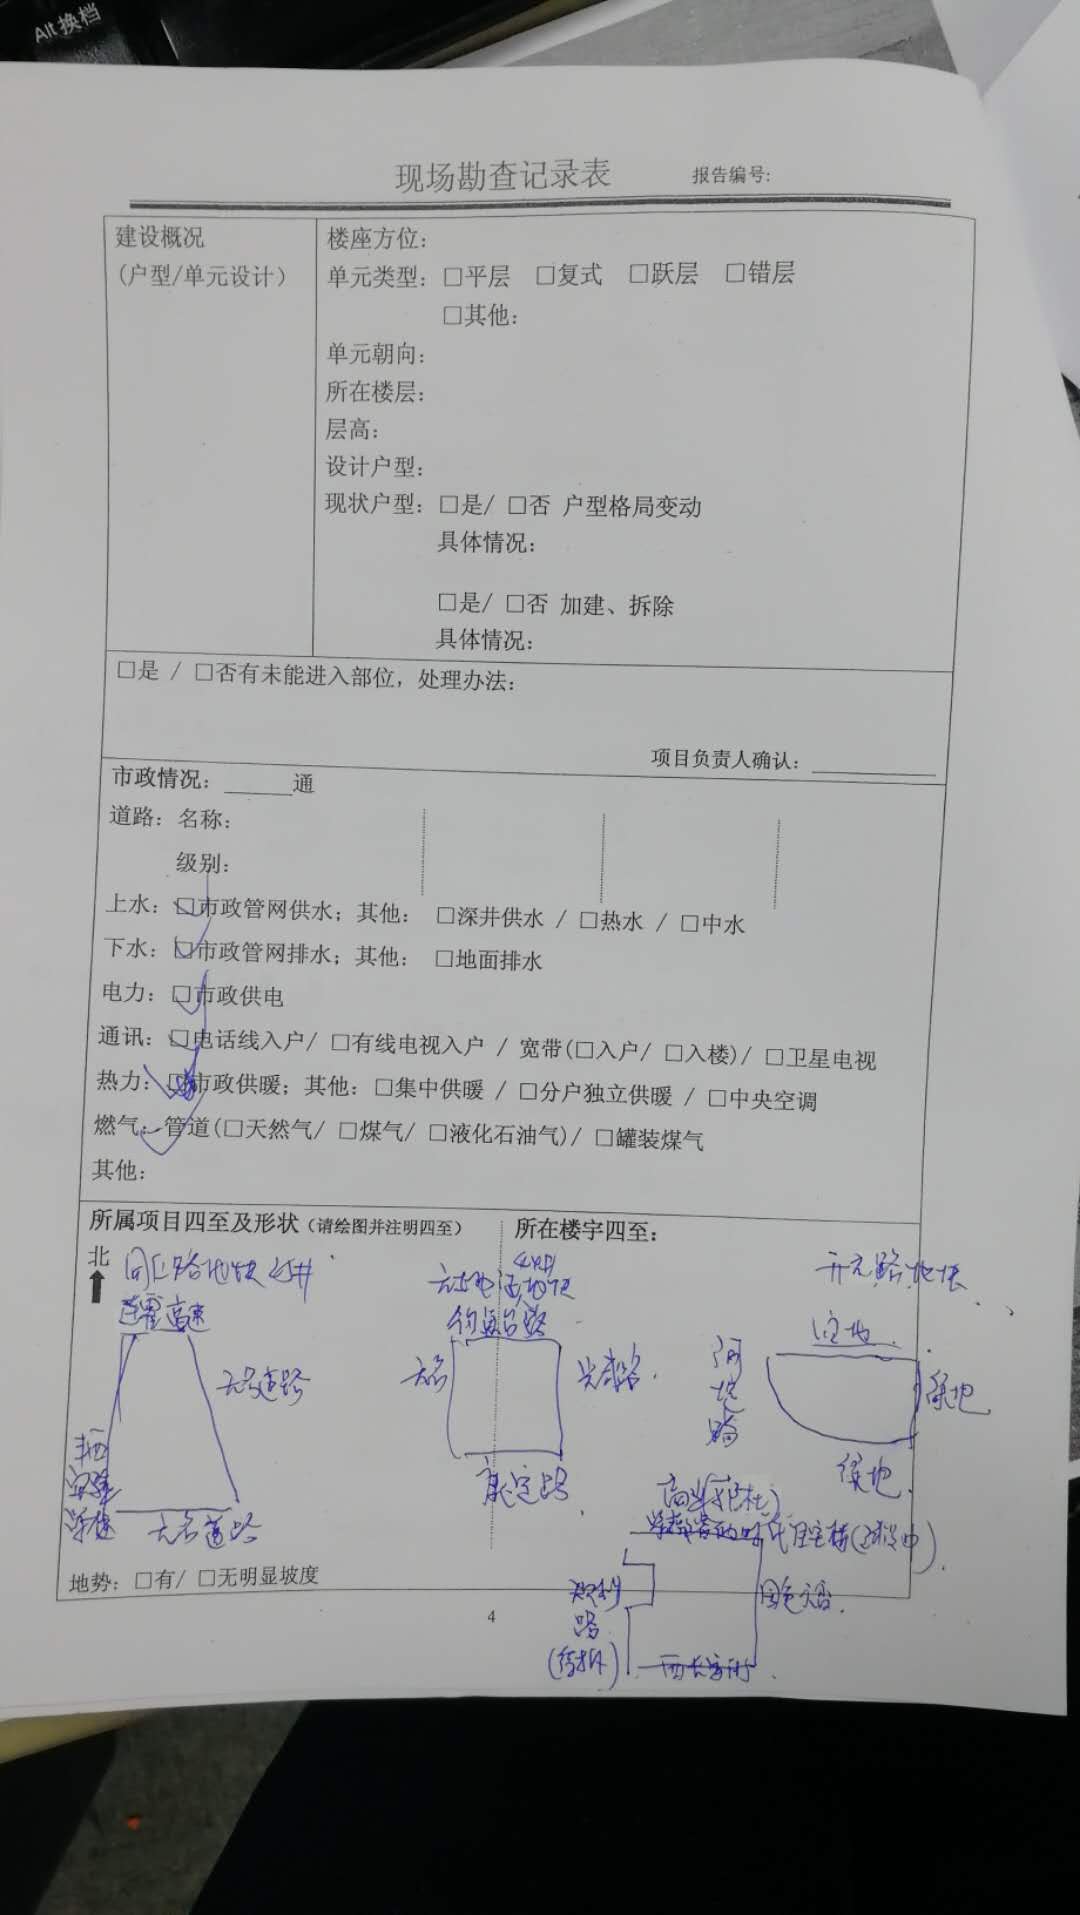 Alt 换档
现场勘查记录表 报告编号:
建设概况
(户型/单元设计)
楼座方位:
单元类型: □平层 □复式 □跃层 □错层
□其他:
单元朝向:
所在楼层:
层高:
设计户型:
现状户型: □是/ □否 户型格局变动
具体情况:
□是/ □否 加建、拆除
具体情况:
□是 / □否有未能进入部位, 处理办法:
项目负责人确认:
市政情况: ______通
道路: 名称:
级别:
上水: □市政管网供水; 其他: □深井供水 / □热水 / □中水
下水: □市政管网排水; 其他: □地面排水
电力: □市政供电
通讯: □电话线入户/ □有线电视入户 / 宽带(□入户/ □入楼)/ □卫星电视
热力: □市政供暖; 其他: □集中供暖 / □分户独立供暖 / □中央空调
燃气: 管道(□天然气/ □煤气/ □液化石油气)/ □罐装煤气
其他:
所属项目四至及形状 (请绘图并注明四至) 所在楼宇四至:
北
开元路地块
连霍高速
空地
无名道路
无名
光华路
绿地
绿地
无名道路
地势: □有/ □无明显坡度
4